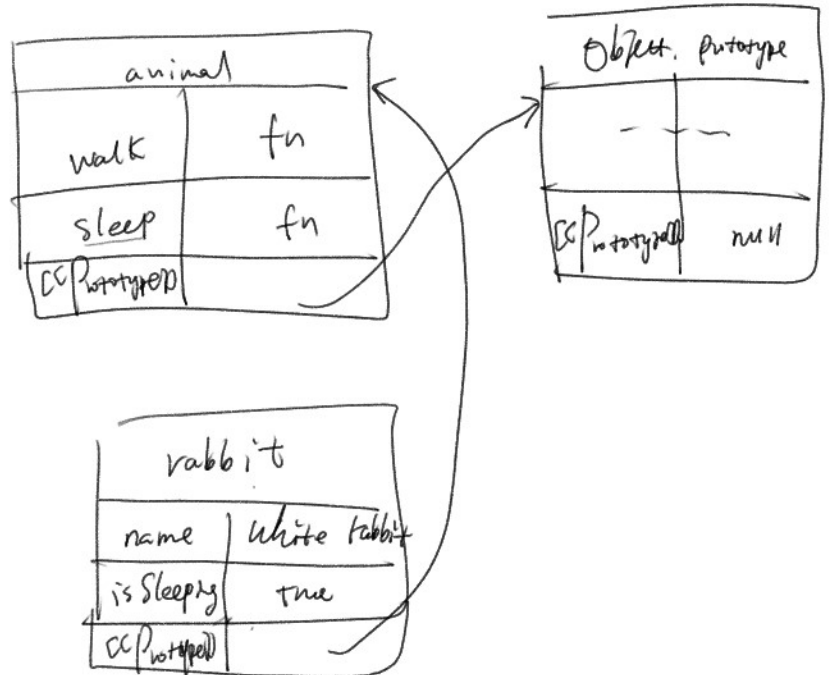 animal
walk fn
sleep fn
[[Prototype]]
Object. prototype
[[Prototype]] null
rabbit
name white rabbit
isSleeping true
[[Prototype]]